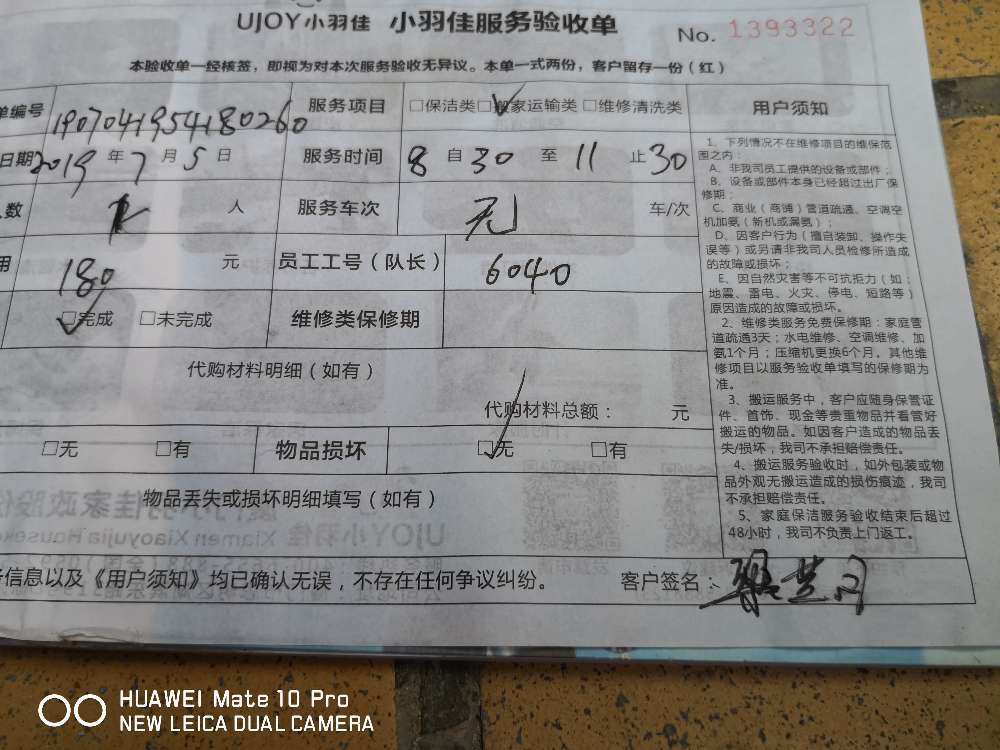 UJOY小羽佳 小羽佳服务验收单 No. 1393322
本验收单一经核签，即视为对本次服务验收无异议。本单一式两份，客户留存一份（红）
单编号 1907041954180260 服务项目 □保洁类 □搬家运输类 □维修清洗类 用户须知
日期 2019 年 7 月 5 日 服务时间 8 自 30 至 11 止 30
人数 人 服务车次 无 车/次
用 180 元 员工工号（队长） 6040
□完成 □未完成 维修类保修期
代购材料明细（如有）
代购材料总额： 元
□无 □有 物品损坏 □无 □有
物品丢失或损坏明细填写（如有）
信息以及《用户须知》均已确认无误，不存在任何争议纠纷。 客户签名：
1、下列情况不在维修项目的维保范
围之内：
A、非我司员工提供的设备或部件；
B、设备或部件本身已经超过出厂保
修期；
C、商业（商铺）管道疏通、空调空
机加氨（新机或漏氨）；
D、因客户行为（擅自装卸、操作失
误等）或另请非我司人员检修所造成
的故障或损坏；
E、因自然灾害等不可抗拒力（如：
地震、雷电、火灾、停电、短路等）
原因造成的故障或损坏。
2、维修类服务免费保修期：家庭管
道疏通3天；水电维修、空调维修、加
氨1个月；压缩机更换6个月。其他维
修项目以服务验收单填写的保修期为
准。
3、搬运服务中，客户应随身保管证
件、首饰、现金等贵重物品并看管好
搬运的物品。如因客户造成的物品丢
失/损坏，我司不承担赔偿责任。
4、搬运服务验收时，如外包装或物
品外观无搬运造成的损伤痕迹，我司
不承担赔偿责任。
5、家庭保洁服务验收结束后超过
48小时，我司不负责上门返工。
HUAWEI Mate 10 Pro
NEW LEICA DUAL CAMERA